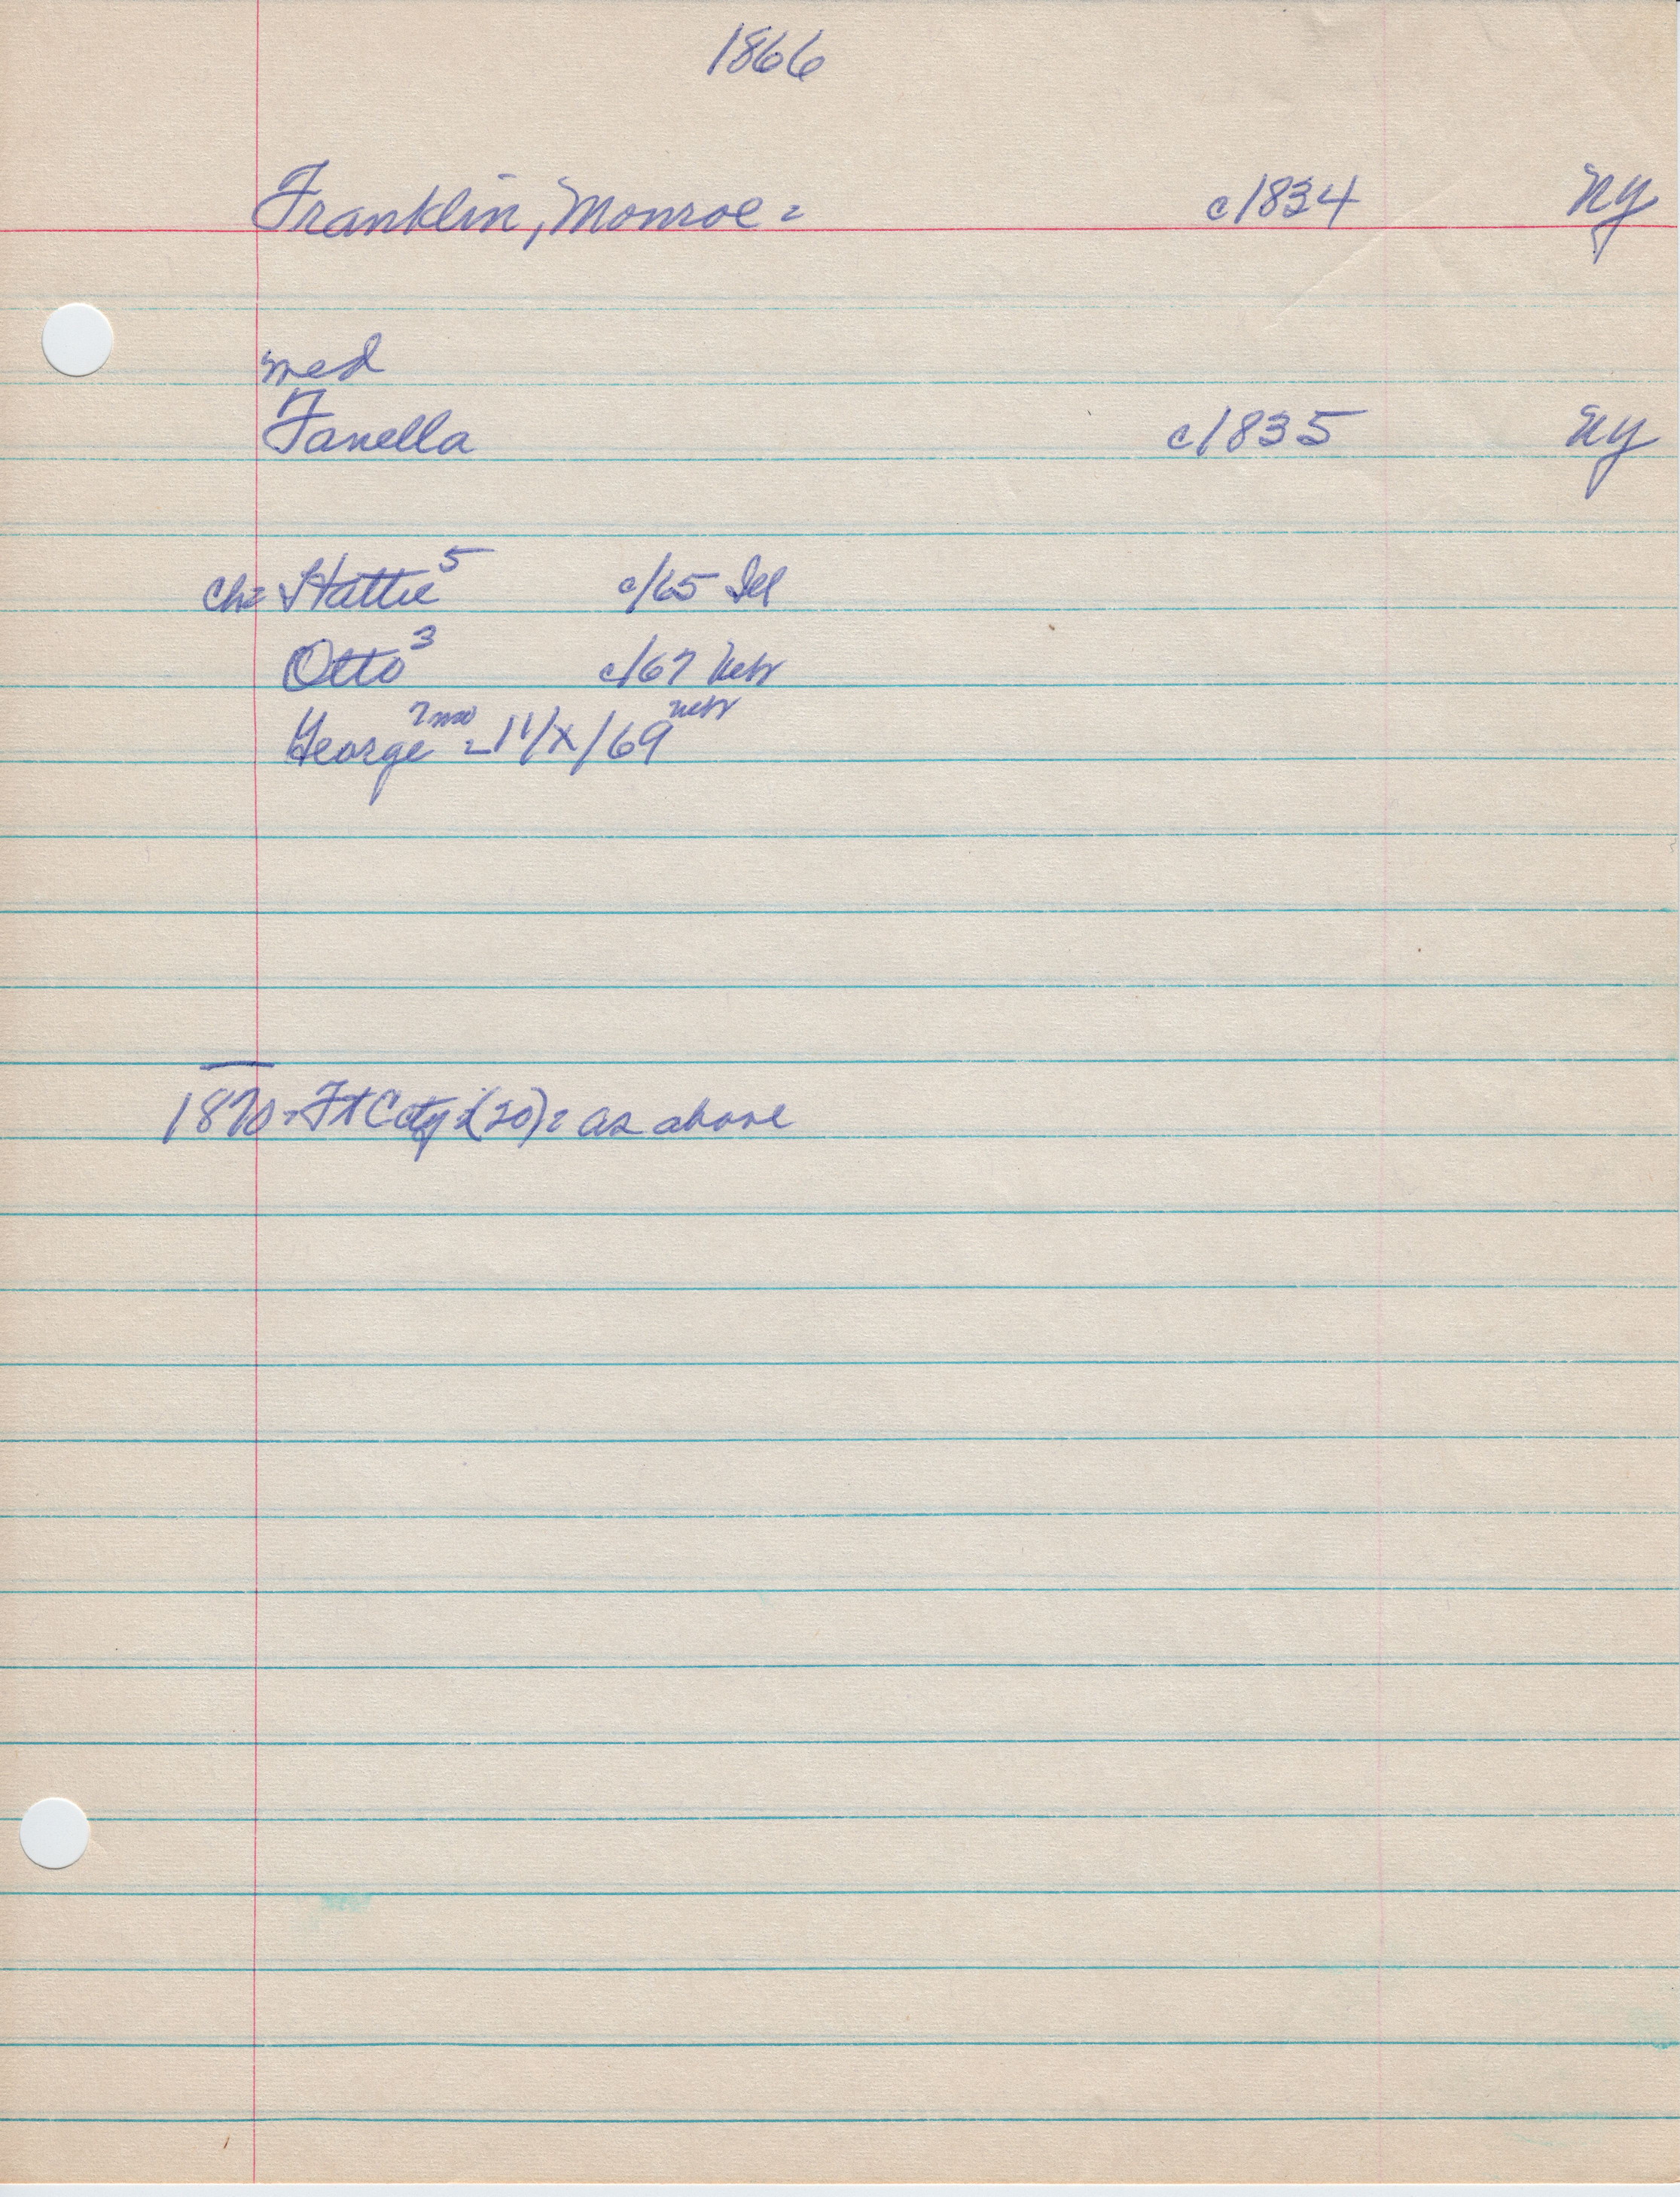 1866
Franklin, Monroe = c/834 NY
med
Fanella c/835 NY
ch= Hattie 5 c/65 Ill
Otto 3 c/67 Nebr
George 7mo = 11/X/69 nebr
1870 = Ft (20) = as above